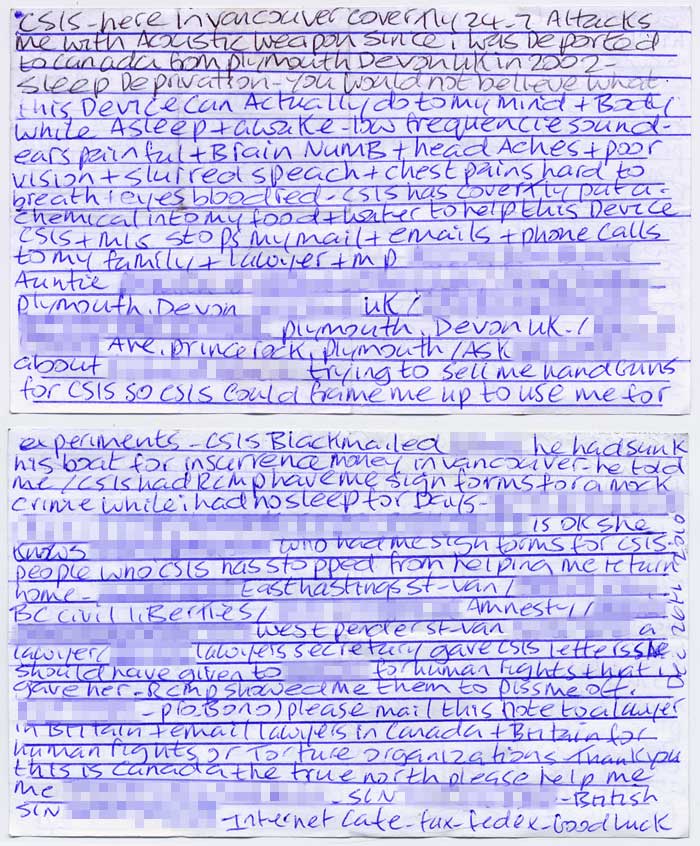 CSIS-here in vancouver covertly 24-7 Attacks
me with Acoustic weapon since, i was Deported
to canada from plymouth Devon UK in 2002-
sleep Deprivation-you would not believe what
this Device can Actually do to my mind + Body
while Asleep + awake-low frequencie sound-
ears painful + Brain NumB + head Aches + poor
vision + slurred speach + chest pains hard to
breath, eyes bloodred-csis has covertly put a-
chemical into my food + water to help this Device
CSIS + mis stops my mail + emails + phone calls
to my family + lawyer + mp
Auntie
plymouth, Devon UK/
plymouth, Devon UK-/
Ave, prince rock, plymouth/Ask
about trying to sell me handguns
for CSIS so csis could frame me up to use me for
experiments-CSIS Blackmailed he had sunk
his boat for insurrence money in vancouver-he told
me/csis had Rcmp have me sign forms for a mock
crime while i had no sleep for Days-
is OK she
knows who had me sign forms for csis-
people who csis has stopped from helping me return
home- East hastings st-van/
BC civil liBerties/ Amnesty/
west pender st-van a
lawyer/ lawyers secretary gave csis letters she
should have given to for human rights that i
gave her-Rcmp showed me them to piss me off.
-pro.Bono) please mail this note to a lawyer
in Britain + email lawyers in Canada + Britain for
human rights or Torture organizations Thank you
this is Canada the true north please help me
me -SIN -British
SIN -Internet Cafe-fax-fedex-Good Luck
Dec 26th 2010